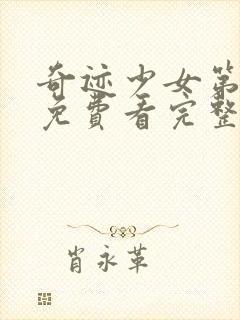 奇迹少女第
免费看完整
肖永革